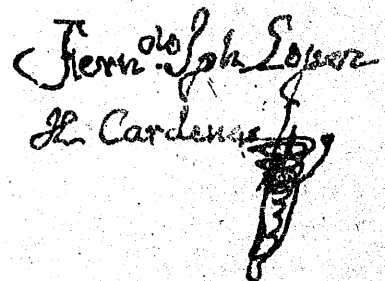 Fern.do Jph Lopez
de Cardenas